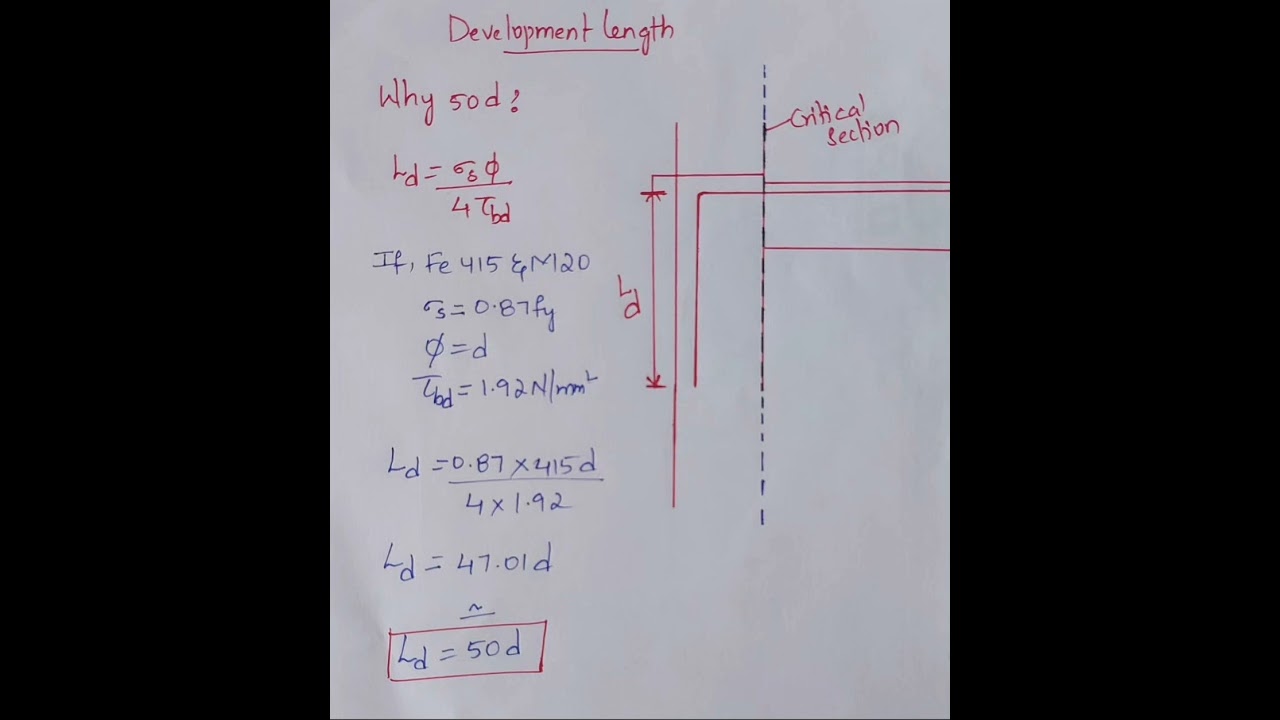 Development length
Why 50d?
Ld = σs ϕ
4 τbd
If, Fe 415 & M20
σs = 0.87fy
ϕ = d
τbd = 1.92 N/mm²
Ld = 0.87 × 415d
4 × 1.92
Ld = 47.01d
~
Ld = 50d
Critical
section
Ld